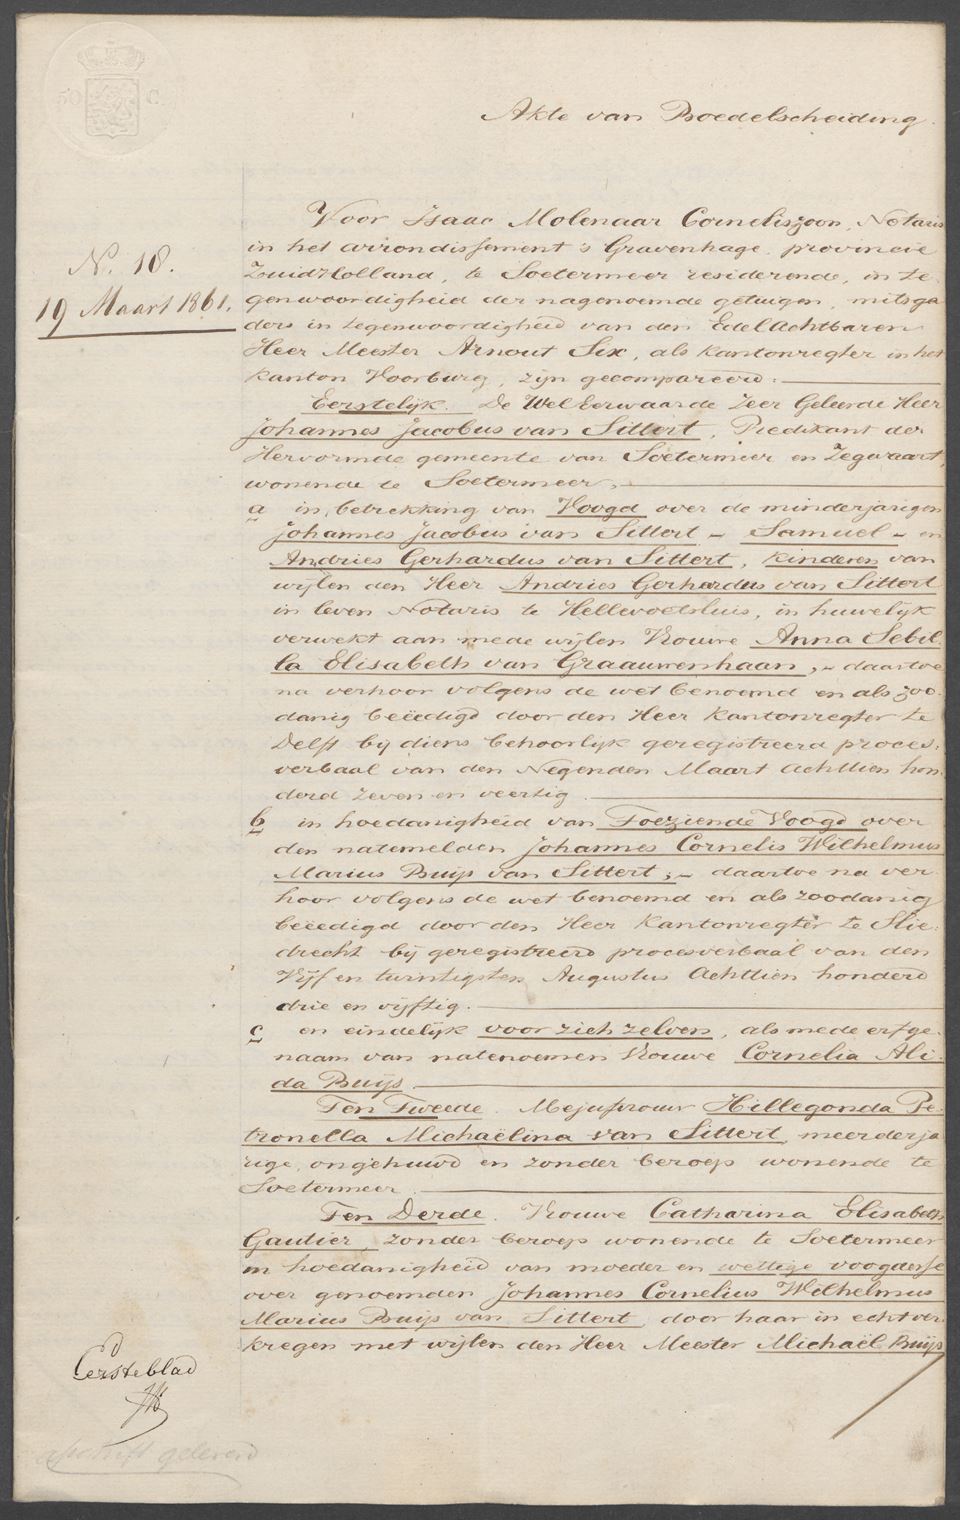 50 C.
Akte van Boedelscheiding.
N. 18.
19 Maart 1861.
Voor Isaac Molenaar Corneliszoon, Notaris
in het arrondissement 's Gravenhage, provincie
Zuid-Holland, te Soetermeer residerende, in te-
genwoordigheid der nagenoemde getuigen, mitsga
ders in tegenwoordigheid van den EdelAchtbaren
Heer Meester Arnout Six, als kantonregter in het
kanton Voorburg, zijn gecompareerd:
Eerstelijk. De WelEerwaarde Zeer Geleerde Heer
Johannes Jacobus van Sittert, Predikant der
Hervormde gemeente van Soetermeer en Zegwaart,
wonende te Soetermeer,
a in betrekking van Voogd over de minderjarigen
Johannes Jacobus van Sittert - Samuel - en
Andries Gerhardus van Sittert, kinderen van
wijlen den Heer Andries Gerhardus van Sittert
in leven Notaris te Hellevoetsluis, in huwelijk
verwekt aan mede wijlen Vrouwe Anna Sebil-
la Elisabeth van Graauwenhaan, - daartoe
na verhoor volgens de wet benoemd en als zoo-
danig beëedigd door den Heer Kantonregter te
Delft bij diens behoorlijk geregistreerd proces-
verbaal van den Negenden Maart Achttien hon-
derd zeven en veertig
b in hoedanigheid van Toeziende Voogd over
den natemelden Johannes Cornelis Wilhelmus
Marius Buijs van Sittert; - daartoe na ver-
hoor volgens de wet benoemd en als zoodanig
beëedigd door den Heer Kantonregter te Slie-
drecht bij geregistreerd procesverbaal van den
Vijf en twintigsten Augustus Achttien honderd
drie en vijftig.
c en eindelijk voor zich zelven, als mede erfge-
naam van natenoemen Vrouwe Cornelia Ali-
da Buijs.
Ten Tweede. Mejufvrouw Hillegonda Pe-
tronella Michaëlina van Sittert, meerderja
rige, ongehuwd en zonder beroep wonende te
Soetermeer
Ten Derde. Vrouwe Catharina Elisabeth
Gautier, zonder beroep wonende te Soetermeer
in hoedanigheid van moeder en wettige voogdesse
over genoemden Johannes Cornelius Wilhelmus
Marius Buijs van Sittert, door haar in echt ver-
kregen met wijlen den Heer Meester Michaël Buijs
Eersteblad
afschrift geleverd